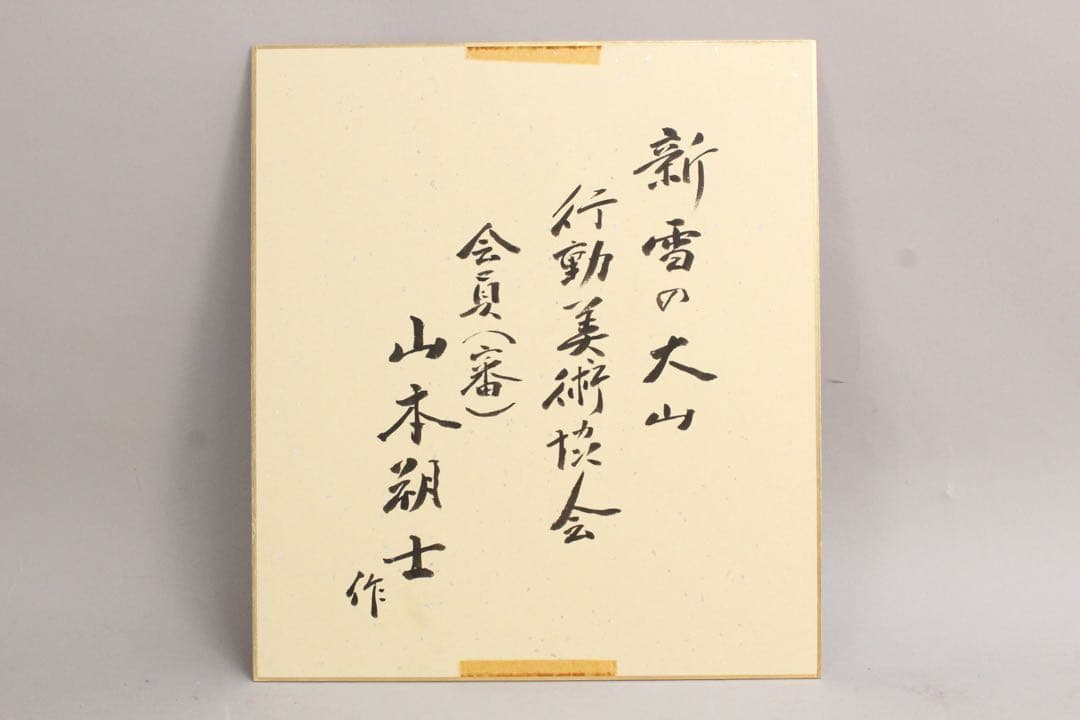 新雪の大山
行動美術協会
会員(審)
山本朔士
作